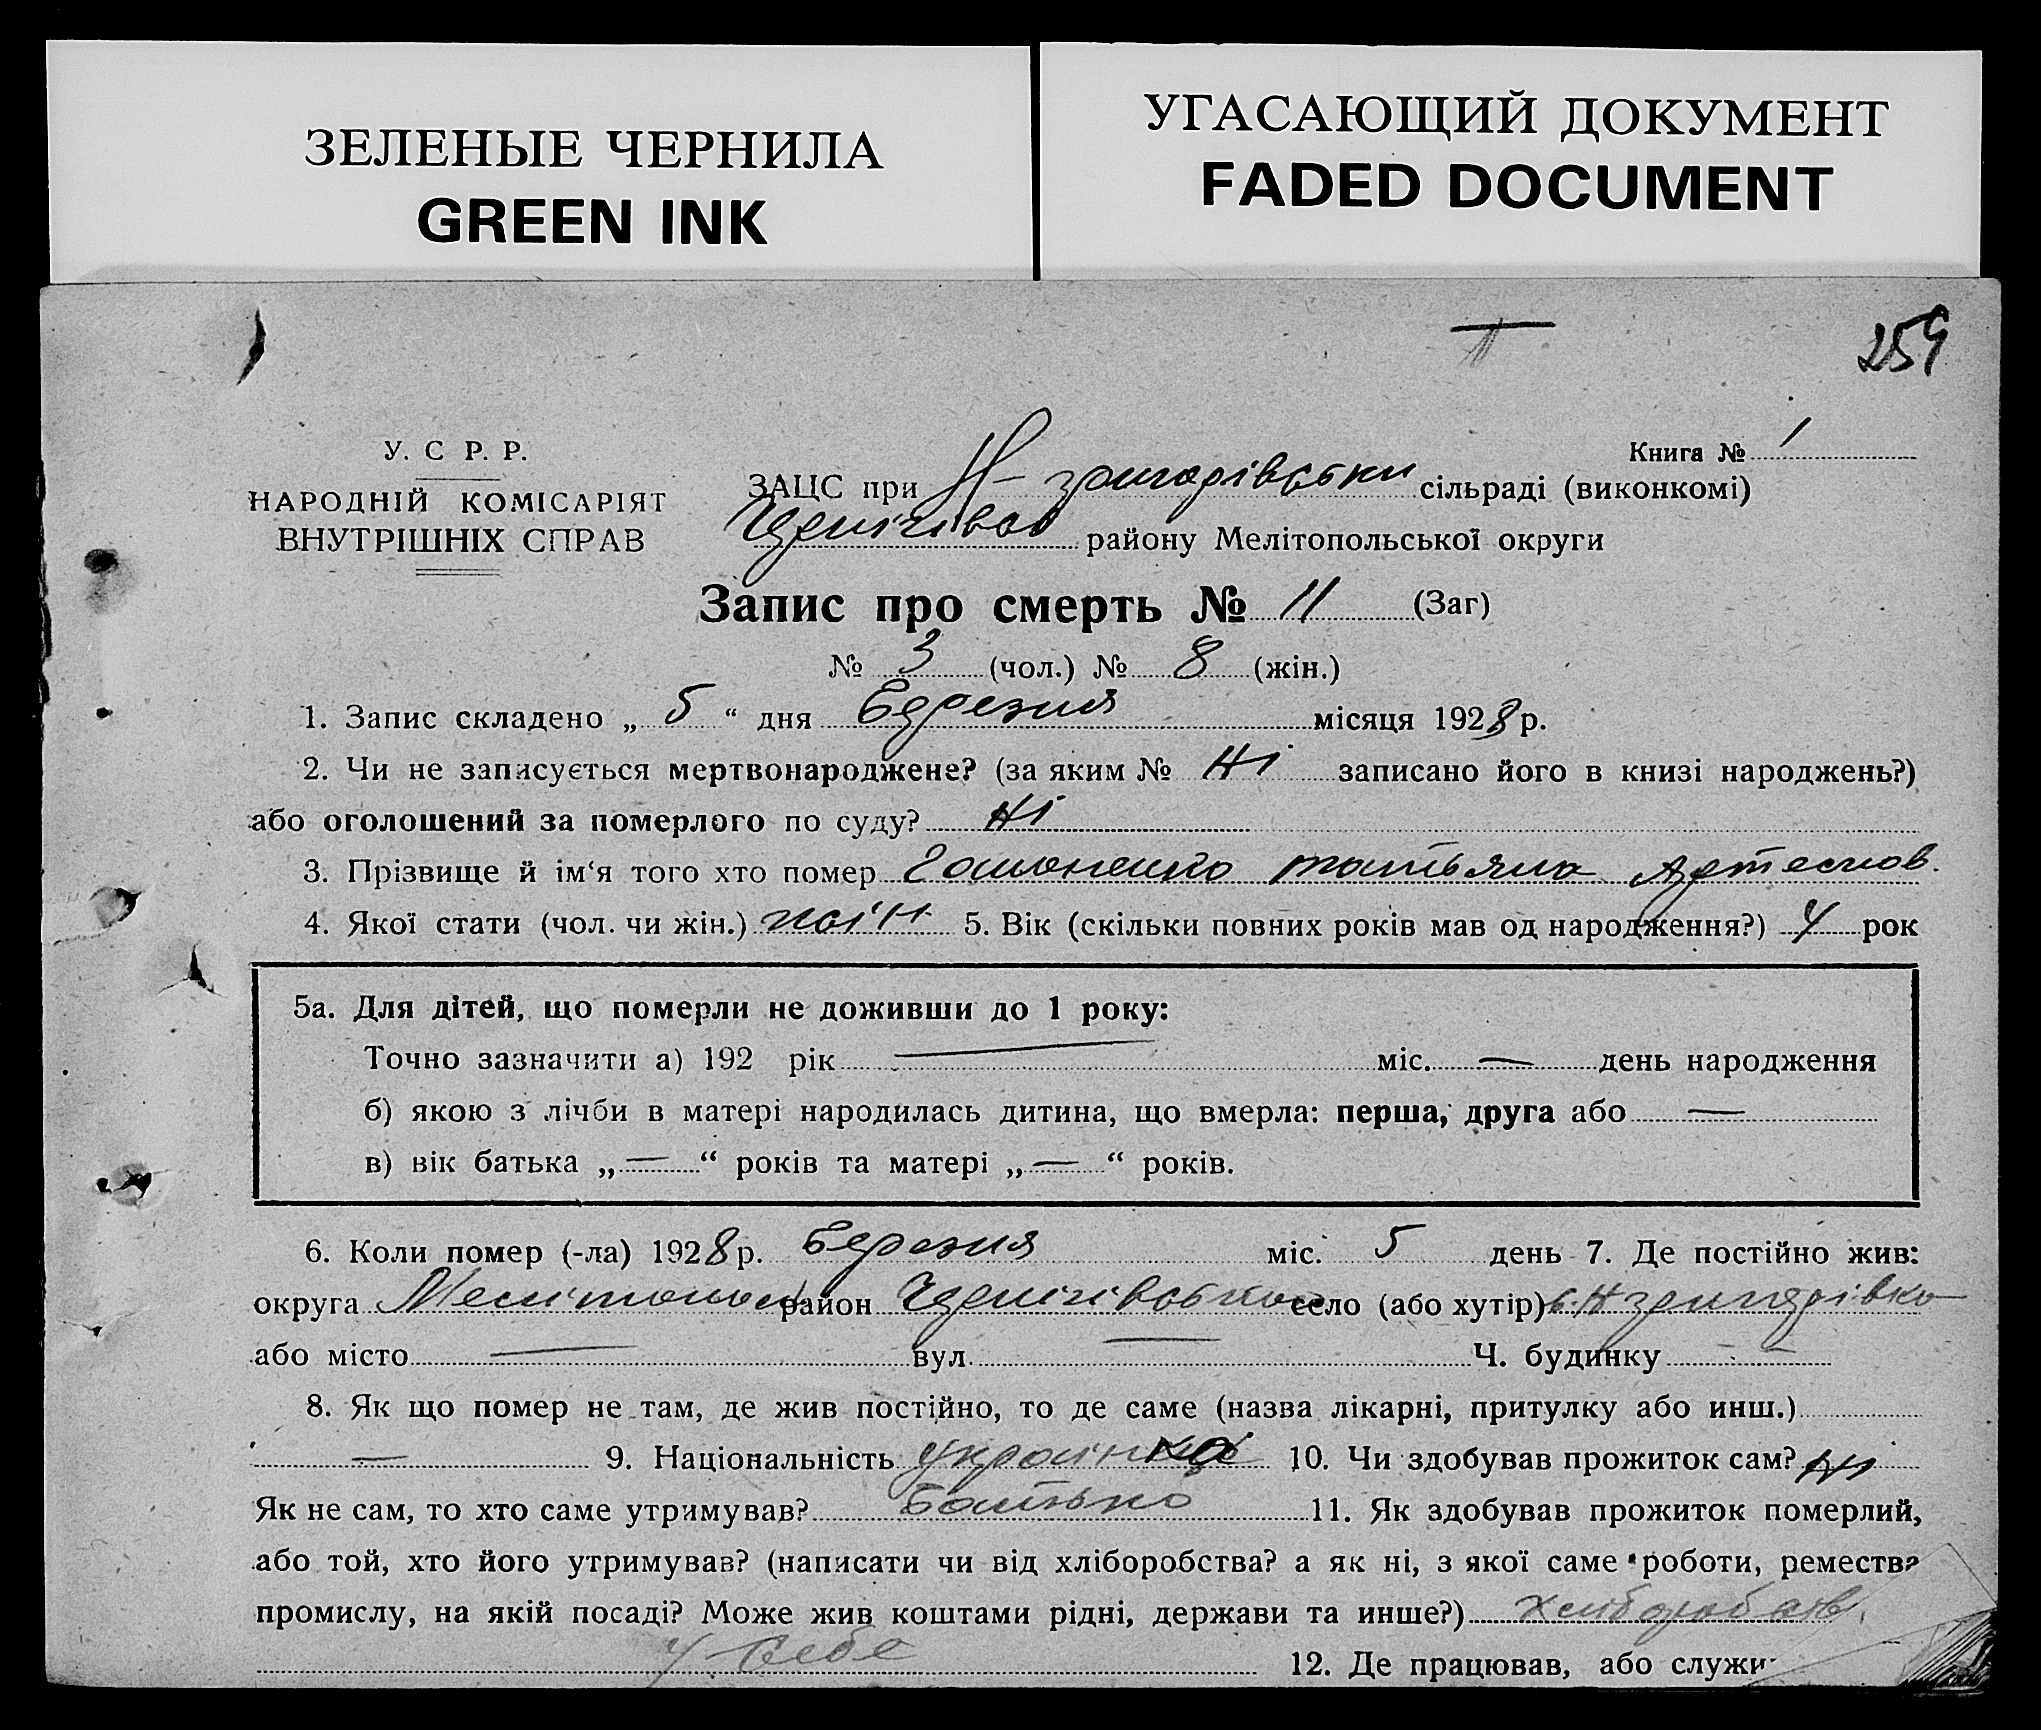 ЗЕЛЕНЫЕ ЧЕРНИЛА
GREEN INK
УГАСАЮЩИЙ ДОКУМЕНТ
FADED DOCUMENT
259
У. С. Р. Р.
НАРОДНІЙ КОМІСАРІЯТ
ВНУТРІШНІХ СПРАВ
Книга № 1
ЗАЦС при Н-григорівськи сільраді (виконкомі)
району Мелітопольської округи
Запис про смерть № 11 (Заг)
№ 3 (чол.) № 8 (жін.)
1. Запис складено „ 5 “ дня Березня місяця 1928 р.
2. Чи не записується мертвонароджене? (за яким № Ні записано його в книзі народжень?)
або оголошений за померлого по суду? Ні
3. Прізвище й ім‘я того хто помер татьяна
4. Якої стати (чол. чи жін.) жін 5. Вік (скільки повних років мав од народження?) 4 рок
5а. Для дітей, що померли не доживши до 1 року:
Точно зазначити а) 192 рік — міс. — день народження
б) якою з лічби в матері народилась дитина, що вмерла: перша, друга або —
в) вік батька „ — “ років та матері „ — “ років.
6. Коли помер (-ла) 1928 р. Березня міс. 5 день 7. Де постійно жив:
округа Мелітопол район село (або хутір) с. Н григорівка
або місто — вул. — Ч. будинку —
8. Як що помер не там, де жив постійно, то де саме (назва лікарні, притулку або инш.)
— 9. Національність українка 10. Чи здобував прожиток сам? Ні
Як не сам, то хто саме утримував? Батько 11. Як здобував прожиток померлий,
або той, хто його утримував? (написати чи від хліборобства? а як ні, з якої саме роботи, ремества
промислу, на якій посаді? Може жив коштами рідні, держави та инше?) хлібороб
у себе 12. Де працював, або служи